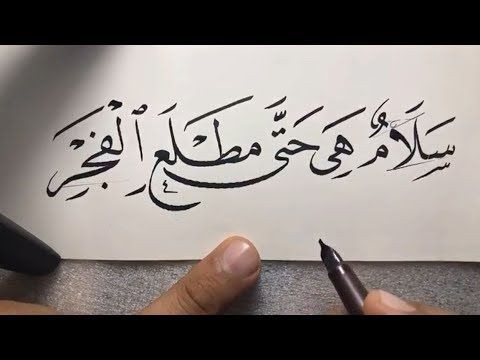 سَلَامٌ هِيَ حَتَّى مَطْلَعِ الْفَجْرِ